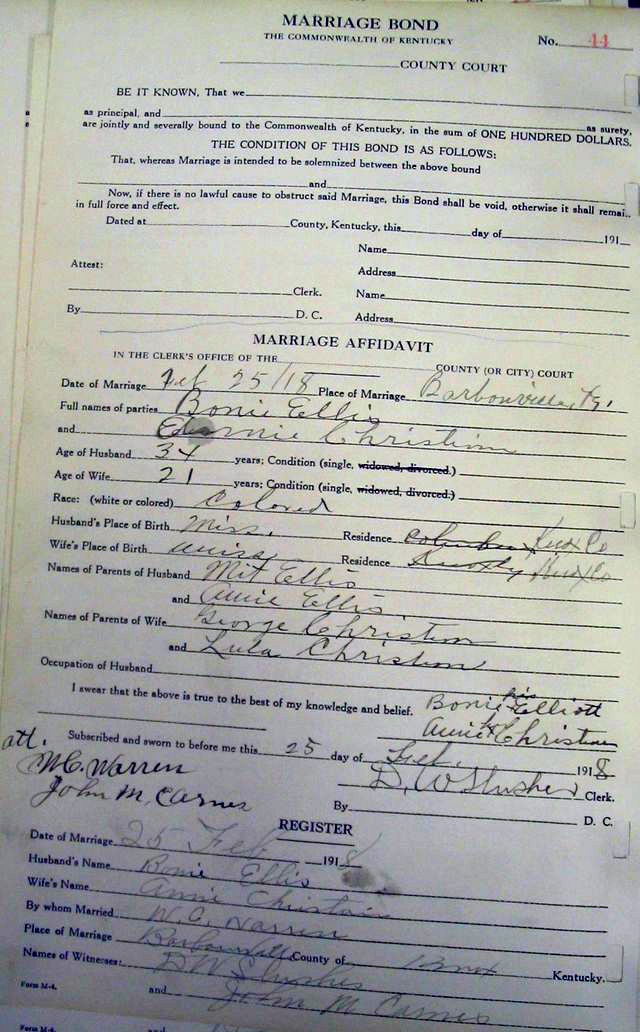 MARRIAGE BOND
THE COMMONWEALTH OF KENTUCKY
No. 44
COUNTY COURT
BE IT KNOWN, That we
as principal, and as surety,
are jointly and severally bound to the Commonwealth of Kentucky, in the sum of ONE HUNDRED DOLLARS.
THE CONDITION OF THIS BOND IS AS FOLLOWS:
That, whereas Marriage is intended to be solemnized between the above bound
and
Now, if there is no lawful cause to obstruct said Marriage, this Bond shall be void, otherwise it shall remai..
in full force and effect.
Dated at County, Kentucky, this day of 191
Name
Attest: Address
Clerk. Name
By D. C. Address
MARRIAGE AFFIDAVIT
IN THE CLERK'S OFFICE OF THE COUNTY (OR CITY) COURT
Date of Marriage Feb 25/18 Place of Marriage Barbourville, Ky.
Full names of parties Bonie Ellis
and Christian
Age of Husband 34 years; Condition (single, widowed, divorced.)
Age of Wife 21 years; Condition (single, widowed, divorced.)
Race: (white or colored) Colored
Husband's Place of Birth Miss. Residence Knox Co
Wife's Place of Birth Residence Knox Co
Names of Parents of Husband Mit Ellis
and Annie Ellis
Names of Parents of Wife George Christian
and Lula Christian
Occupation of Husband
I swear that the above is true to the best of my knowledge and belief. Bonie his x Elliott
Annie x Christian
Subscribed and sworn to before me this 25 day of Feb. 1918
att. D. W Slusher Clerk.
W.C. Warren
John M. Carnes By D. C.
REGISTER
Date of Marriage 25 Feb 1918
Husband's Name Bonie Ellis
Wife's Name Annie Christian
By whom Married W. C. Warren
Place of Marriage Barbourville County of Knox Kentucky.
Names of Witnesses: D W Slusher
and John M Carnes
Form M-4.
Form M-4. and